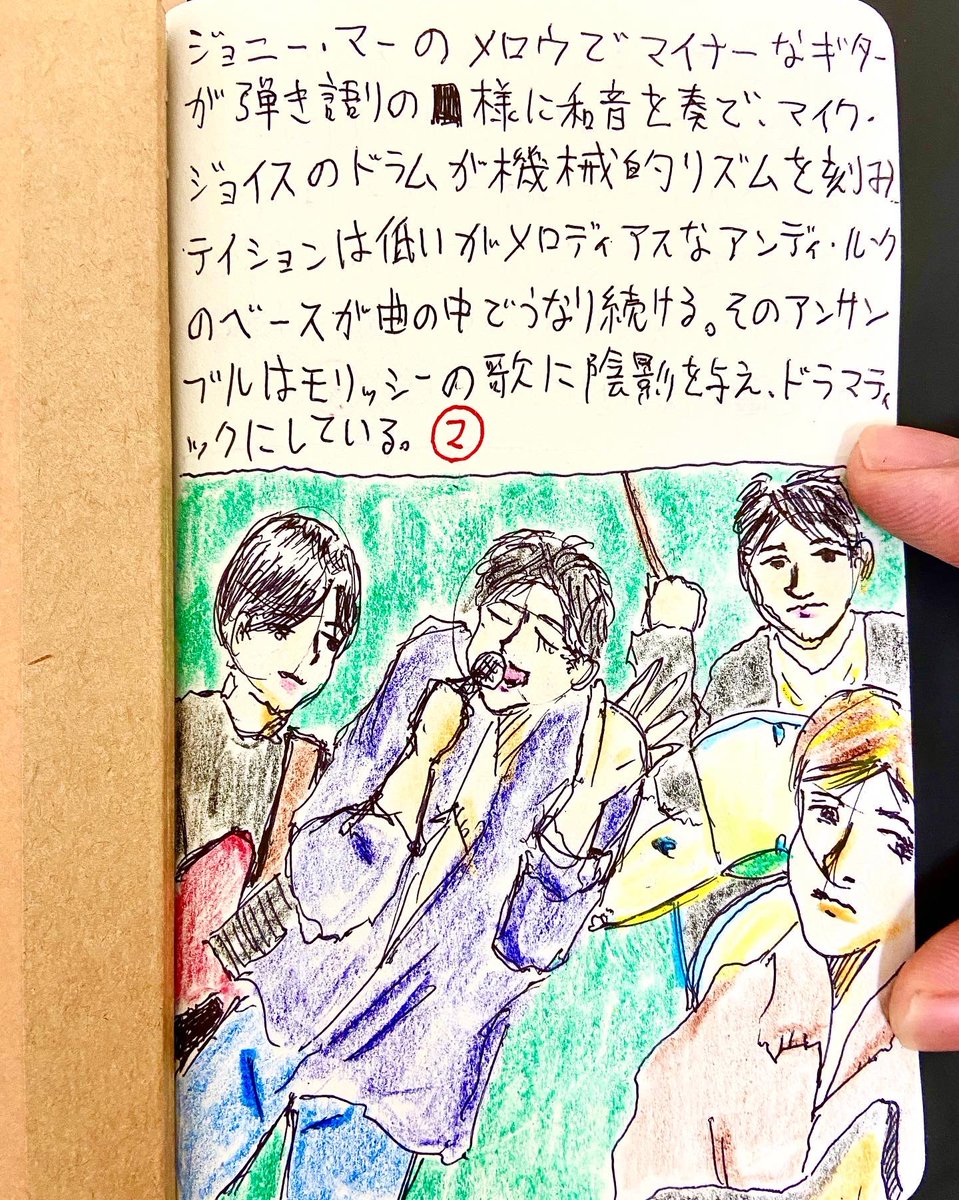 ジョニー・マーのメロウでマイナーなギター
が弾き語りの様に和音を奏で、マイク・
ジョイスのドラムが機械的リズムを刻み
テイションは低いがメロディアスなアンディ・ルーク
のベースが曲の中でうなり続ける。そのアンサン
ブルはモリッシーの歌に陰影を与え、ドラマティ
ックにしている。②